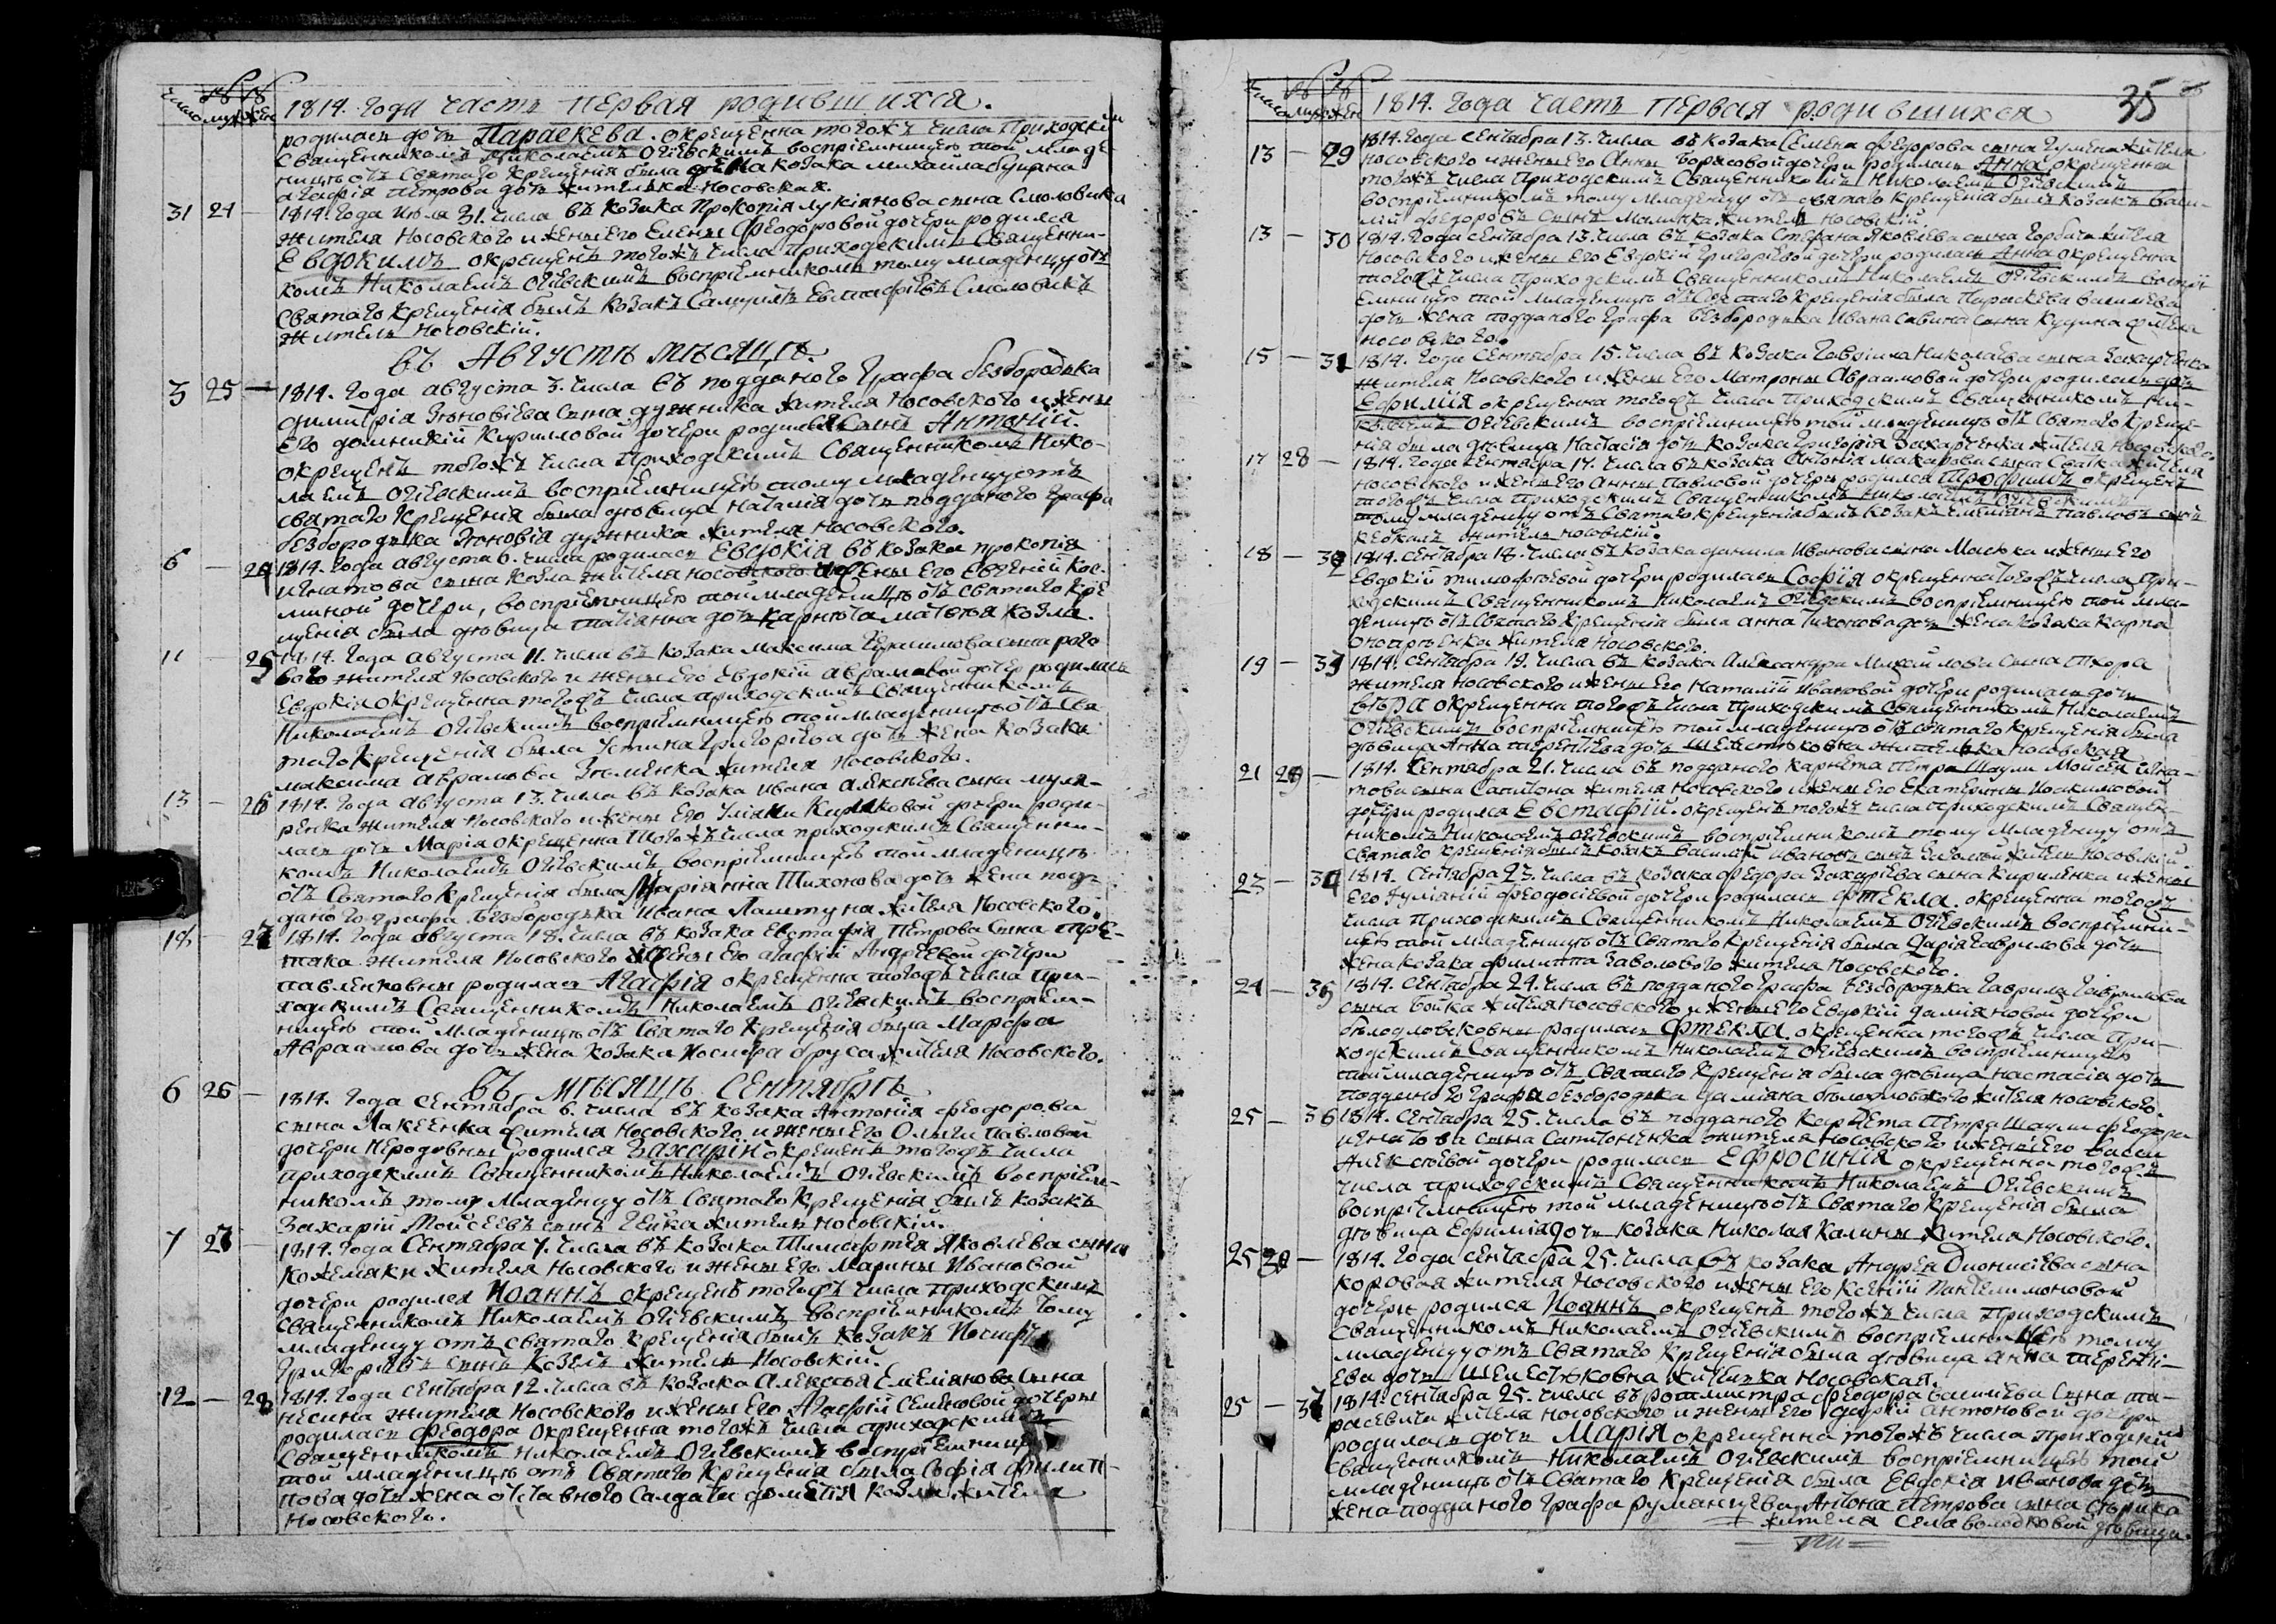 1814. Года часть первая родившихся.
родилась дочь Параскева. окрещенна того жъ числа Приходскимъ
Священникомъ Николаемъ Огіевскимъ воспріемницею той младе-
ницѣ отъ Святаго Крещенія была козака Михайла
Агафія Петрова дочь жителька Носовская.
31 24 — 1814. Года Июля 31. числа въ козака Прокопія Лукіянова сына Смоловика
жителя Носовского и жены Его Елены Феодоровой дочери родился
Евдокимъ окрещенъ того жъ числа Приходскимъ Священни-
комъ Николаемъ Огіевскимъ воспріемникомъ тому младенцу отъ
Святаго Крещенія былъ козакъ Самуилъ Евстафіевъ Смоловикъ
житель Носовскій.
въ Августѣ мѣсяцѣ.
3 25 — 1814. Года августа 3. числа въ подданого Графа безбородька
димитрія Зѣновіева сына дужника жителя Носовского и жены
Его домникіи Кириловой дочери родился Сынъ Антоній.
окрещенъ того жъ числа Приходскимъ Священникомъ Нико-
лаемъ Огіевскимъ воспріемницею тому младенцу отъ
святаго Крещенія была дѣвица Наталія дочь подданого Графа
безбородька Зѣновія дужника жителя Носовского.
6 — 24 1814. Года августа 6. числа родилась Евдокія въ козака прокопія
игнатова сына козла жителя носовского и жены Его Евгеніи Кос-
миной дочери, воспріемницею той младеницѣ отъ святаго Кре-
щенія была дѣвица татіанна дочь карнѣта матвѣя козла.
11 — 25 1814. Года августа 11. числа въ козака максима Герасимова сына рого-
вого жителя Носовского и жены Его Евдокіи аврамовой дочери родилась
Евдокія окрещенна того жъ числа приходскимъ священникомъ
Николаемъ Огіевскимъ воспріемницею той младеницѣ отъ свя
таго Крещенія была Устина Григоріева дочь жена козака
максима аврамова жителя Носовского.
13 — 26 1814. Года августа 13. числа въ козака ивана алексѣева сына муля-
ренка жителя Носовского и жены Его Уліяни Кириковой дочери роди-
лась дочь Марія окрещенна того жъ числа приходскимъ Священни-
комъ Николаемъ Огіевскимъ воспріемницею той младеницѣ
отъ Святаго Крещенія была Маріянна Тихонова дочь жена под-
даного Графа безбородька Ивана жителя Носовского.
18 — 27 1814. Года августа 18. числа въ козака Евстафія Петрова сына
жителя Носовского и жены Его агафіи Андреевой дочери
павленковны родилась Агафія окрещенна того жъ числа при-
ходскимъ Священникомъ Николаемъ Огіевскимъ воспріем-
ницею той младеницѣ отъ Святаго Крещенія была Марфа
Авраамова дочь жена козака Иосифа бруса жителя Носовского.
въ мѣсяцѣ Сентябрѣ
6 26 — 1814. Года Сентября 6. числа въ козака Антонія феодорова
сына жителя Носовского и жены Его Ольги Павловой
дочери родился Захарій окрещенъ того жъ числа
приходскимъ Священникомъ Николаемъ Огіевскимъ воспріем-
никомъ тому младенцу отъ Святаго Крещенія былъ козакъ
Захарій Мойсеевъ сынъ житель Носовскій.
7 27 — 1814. Года Сентября 7. числа въ козака Тимофтея Яковлева сына
кожемяки жителя Носовского и жены Его Марины Ивановой
дочери родился Иоаннъ окрещенъ того жъ числа приходскимъ
священникомъ Николаемъ Огіевскимъ воспріемникомъ тому
младенцу отъ святаго крещенія былъ козакъ Иосифъ
Григоріевъ сынъ Козелъ житель Носовскій.
12 — 28 1814. Года сентября 12. числа въ козака алексѣя Емеліянова сына
жителя Носовского и жены Его Агафіи Семеновой дочери
родилась Феодора окрещенна того жъ числа приходскимъ
Священникомъ Николаемъ Огіевскимъ воспріемницею
той младеницѣ отъ Святаго Крещенія была Софія филип-
пова дочь жена отставного Салдата козла жителя
Носовского.
35
1814. Года часть первая родившихся
13 — 29 1814. Года сентября 13. числа въ козака Семена федорова сына жителя
носовского и жены его Анны борисовой дочери родилась Анна окрещенна
того жъ числа приходскимъ Священникомъ Николаемъ Огіевскимъ
воспріемникомъ тому младенцу отъ святаго крещенія былъ козакъ васи-
лій федоровъ сынъ житель носовскій.
13 — 30 1814. Года сентября 13. числа въ козака Стефана Яковлева сына Горбача жителя
Носовского и жены его Евдокіи Григоріевой дочери родилась Анна окрещенна
того жъ числа приходскимъ Священникомъ Николаемъ Огіевскимъ воспрі-
емницею той младеницѣ отъ Святаго Крещенія была Параскева василіева
дочь жена подданого Графа безбородька Ивана савина сына жителя
носовского.
15 — 31 1814. Года Сентября 15. числа въ козака Гавріила Николаева сына Захарченка
жителя Носовского и жены Его Матроны Авраамовой дочери родилась дочь
Ефимія окрещенна того жъ числа приходскимъ Священникомъ Ни-
колаемъ Огіевскимъ воспріемницею той младеницѣ отъ Святаго Креще-
нія была дѣвица Настасія дочь козака Григорія Захарченка жителя Носовского.
17 28 — 1814. Года Сентября 17. числа въ козака Антонія макарова сына жителя
носовского и жены Его Анны Павловой дочери родился Трофимъ окрещенъ
того жъ числа приходскимъ Священникомъ Николаемъ Огіевскимъ
тому младенцу отъ Святаго крещенія былъ козакъ павловъ сынъ
житель носовскій.
18 — 32 1814. Сентября 18. числа въ козака данила Иванова сына и жены Его
Евдокіи тимофѣевой дочери родилась Софія окрещенна того жъ числа При-
ходскимъ Священникомъ Николаемъ Огіевскимъ воспріемницею той мла-
деницѣ отъ Святаго Крещенія была анна Тихонова дочь жена козака карпа
жителя Носовского.
19 — 33 1814. Сентября 19. числа въ козака Александра Михайлова сына тхора
жителя Носовского и жены Его Наталіи Ивановой дочери родилась дочь
Вѣра окрещенна того жъ числа приходскимъ Священникомъ Николаемъ
Огіевскимъ воспріемницею той младеницѣ отъ святаго крещенія была
дѣвица Анна терентіева дочь Шелестѣковна жителька Носовская
21 29 — 1814. Сентября 21. числа въ подданого карнѣта Петра Шаули Мойсея игна-
това сына Сапѣтона жителя Носовского и жены Его Екатерины Иоакимовой
дочери родился Евстафій. окрещенъ того жъ числа приходскимъ Священ-
никомъ Николаемъ Огіевскимъ воспріемникомъ тому младенцу отъ
святаго крещенія былъ козакъ василій ивановъ сынъ житель Носовскій.
23 — 34 1814. Сентября 23. числа въ козака федора Захаріева сына Кириленка и жены
Его феодосіевой дочери родилась Фтекла. окрещенна того жъ
числа приходскимъ Священникомъ Николаемъ Огіевскимъ воспріемни-
цею той младеницѣ отъ Святаго Крещенія была дарія Гаврилова дочь
жена козака филиппа Заволового жителя Носовского.
24 — 35 1814. Сентября 24. числа въ подданого Графа безбородька Гаврила Гаврилова
сына бойка жителя носовского и жены Его Евдокіи даміяновой дочери
родилась Фтекла. окрещенна того жъ числа При-
ходскимъ Священникомъ Николаемъ Огіевскимъ воспріемницею
той младеницѣ отъ Святаго крещенія была дѣвица настасія дочь
подданого Графа безбородька даміяна жителя носовского.
25 — 36 1814. Сентября 25. числа въ подданого Карнѣта Петра Шаули феодора
игнатова сына Сапѣтоненка жителя носовского и жены Его
Алексѣевой дочери родилась Ефросинія окрещенна того жъ
числа приходскимъ Священникомъ Николаемъ Огіевскимъ
воспріемницею той младеницѣ отъ Святаго Крещенія была
дѣвица Ефимія дочь козака Николая Калины жителя Носовского.
25 30 — 1814. Года сентября 25. числа въ козака Андрея Дионисіева сына
коровая жителя Носовского и жены его Ксеніи Пантелимоновой
дочери родился Иоаннъ окрещенъ того жъ числа Приходскимъ
Священникомъ Николаемъ Огіевскимъ воспріемницею тому
младенцу отъ Святаго крещенія была дѣвица анна теренті-
ева дочь Шелестѣковна жителька Носовская.
25 — 37 1814. Сентября 25. числа въ ротмистра феодора василіева сына та-
расевича жителя носовского и жены Его даріи антоновой дочери
родилась дочь Марія окрещенна того жъ числа приходскимъ
священникомъ Николаемъ Огіевскимъ воспріемницею той
младеницѣ отъ Святаго Крещенія была Евдокія иванова дочь
жена подданого Графа румянцева Антона Петрова сына
жителя села володковой дѣвицы.